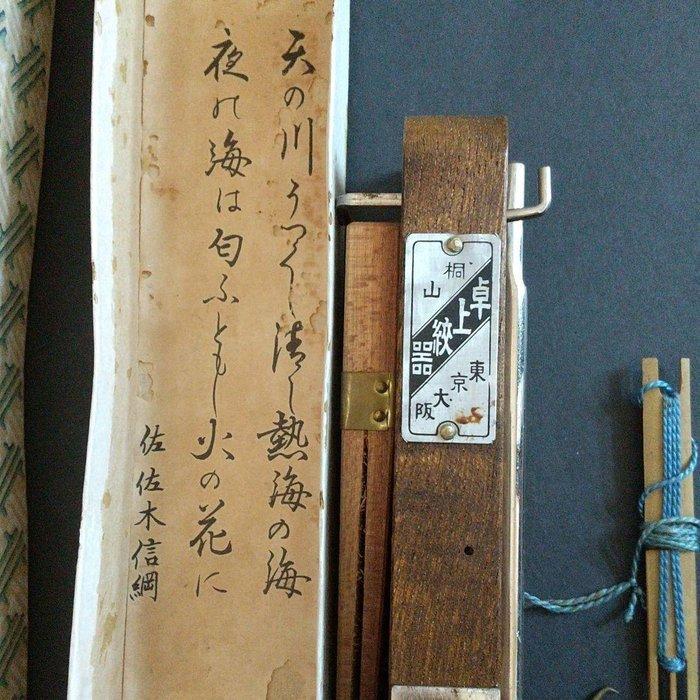 天の川うつくし清し熱海の海
夜の海は匂ふともし火の花に
佐佐木信綱
桐山
卓上絞器
東京大阪